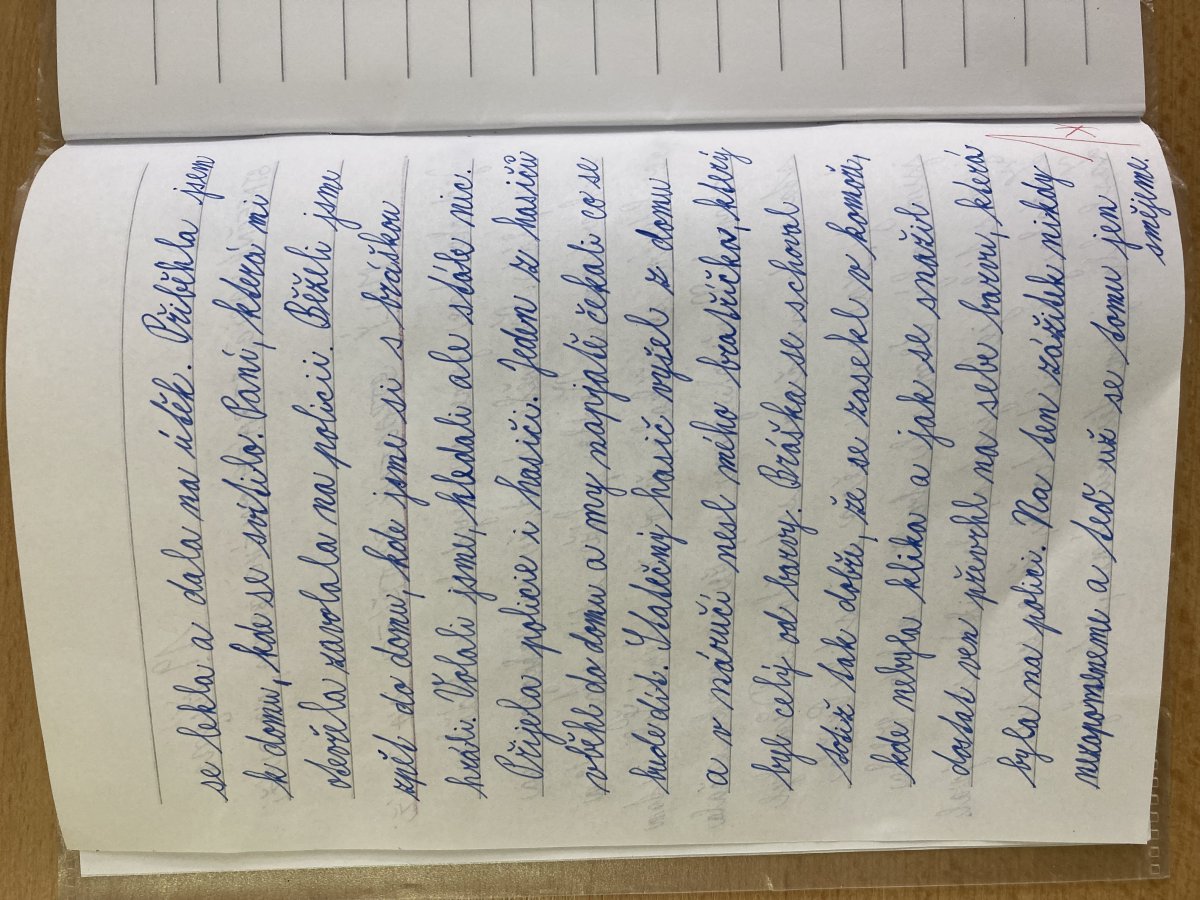 se lekla a dala na útěk. Přiběhla jsem
k domu, kde se svítilo. Paní, která mi
otevřela zavolala na policii. Běželi jsme
zpět do domu, kde jsme si s bráškou
hráli. Volali jsme, hledali ale stále nic.
Přijela policie i hasiči. Jeden z hasičů
vběhl do domu a my napjatě čekali co se
bude dít. Statečný hasič vyšel z domu
a v náručí nesl mého bratříčka, který
byl celý od barvy. Bráška se schoval
totiž tak dobře, že se zasekl v komoře,
kde nebyla klika a jak se snažil
dostat ven převrhl na sebe barvu, která
byla na polici. Na ten zážitek nikdy
nezapomeneme a teď už se tomu jen
smějeme.